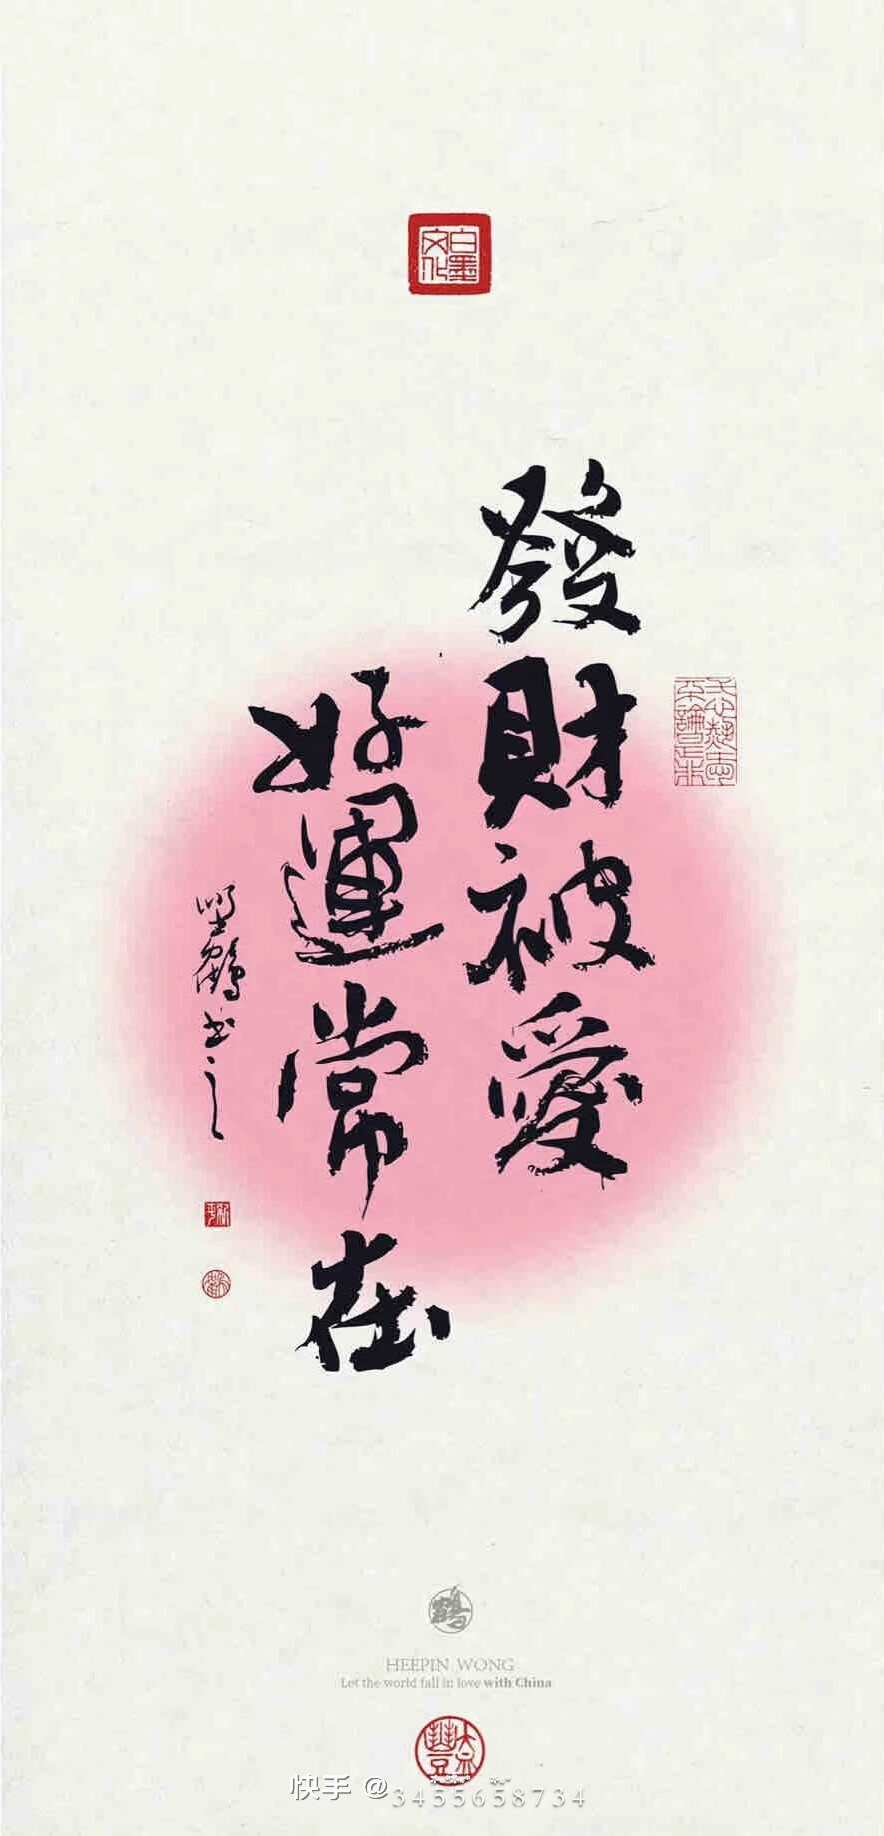 白墨文化
發財被愛
好運常在
鶴書之
鶴
HEEPIN WONG
Let the world fall in love with China
快手 @3455658734